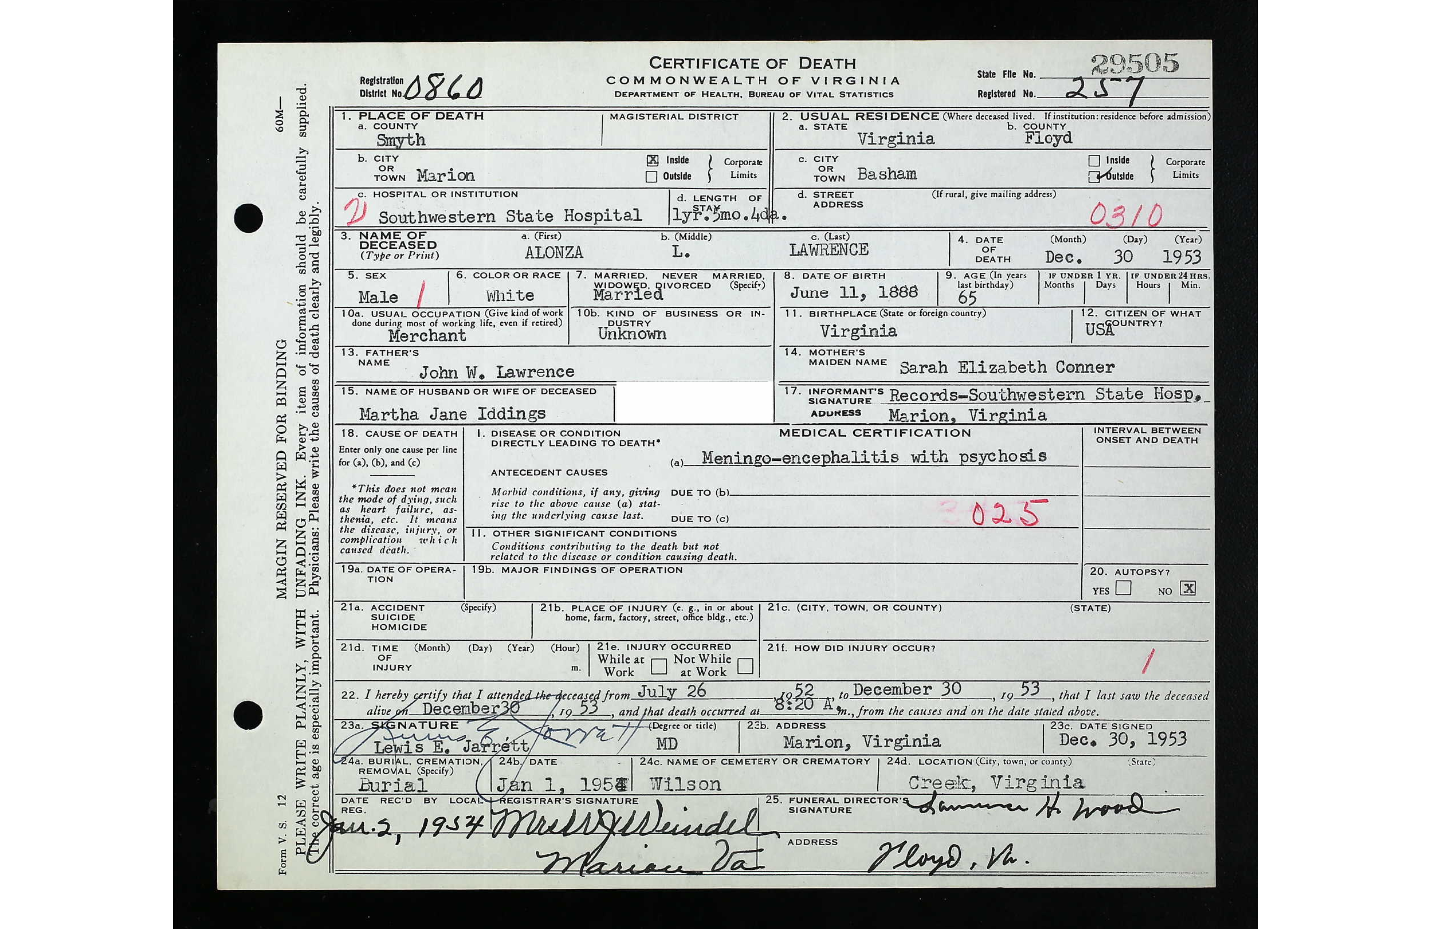 CERTIFICATE OF DEATH
COMMONWEALTH OF VIRGINIA
DEPARTMENT OF HEALTH, BUREAU OF VITAL STATISTICS
Registration District No. 0860
State File No. 29505
Registered No. 257
1. PLACE OF DEATH
a. COUNTY Smyth
MAGISTERIAL DISTRICT
2. USUAL RESIDENCE (Where deceased lived. If institution: residence before admission)
a. STATE Virginia
b. COUNTY Floyd
b. CITY OR TOWN Marion
Inside Outside Corporate Limits
c. CITY OR TOWN Basham
Inside Outside Corporate Limits
c. HOSPITAL OR INSTITUTION
2 Southwestern State Hospital
d. LENGTH OF STAY
1yr.5mo.4da.
d. STREET ADDRESS (If rural, give mailing address)
0310
3. NAME OF DECEASED (Type or Print)
a. (First) ALONZA
b. (Middle) L.
c. (Last) LAWRENCE
4. DATE OF DEATH (Month) (Day) (Year)
Dec. 30 1953
5. SEX
Male 1
6. COLOR OR RACE
White
7. MARRIED, NEVER MARRIED, WIDOWED, DIVORCED (Specify)
Married
8. DATE OF BIRTH
June 11, 1888
9. AGE (In years last birthday)
65
IF UNDER 1 YR. Months Days
IF UNDER 24 HRS. Hours Min.
10a. USUAL OCCUPATION (Give kind of work done during most of working life, even if retired)
Merchant
10b. KIND OF BUSINESS OR INDUSTRY
Unknown
11. BIRTHPLACE (State or foreign country)
Virginia
12. CITIZEN OF WHAT COUNTRY?
USA
13. FATHER'S NAME
John W. Lawrence
14. MOTHER'S MAIDEN NAME Sarah Elizabeth Conner
15. NAME OF HUSBAND OR WIFE OF DECEASED
Martha Jane Iddings
17. INFORMANT'S SIGNATURE Records-Southwestern State Hosp.
ADDRESS Marion, Virginia
18. CAUSE OF DEATH
Enter only one cause per line for (a), (b), and (c)
*This does not mean the mode of dying, such as heart failure, asthenia, etc. It means the disease, injury, or complication which caused death.
MEDICAL CERTIFICATION
INTERVAL BETWEEN ONSET AND DEATH
I. DISEASE OR CONDITION DIRECTLY LEADING TO DEATH*
(a) Meningo-encephalitis with psychosis
ANTECEDENT CAUSES
Morbid conditions, if any, giving rise to the above cause (a) stating the underlying cause last.
DUE TO (b)
DUE TO (c)
025
II. OTHER SIGNIFICANT CONDITIONS
Conditions contributing to the death but not related to the disease or condition causing death.
19a. DATE OF OPERATION
19b. MAJOR FINDINGS OF OPERATION
20. AUTOPSY?
YES NO X
21a. ACCIDENT SUICIDE HOMICIDE (Specify)
21b. PLACE OF INJURY (e. g., in or about home, farm, factory, street, office bldg., etc.)
21c. (CITY, TOWN, OR COUNTY) (STATE)
21d. TIME OF INJURY (Month) (Day) (Year) (Hour) m.
21e. INJURY OCCURRED
While at Work Not While at Work
21f. HOW DID INJURY OCCUR?
1
22. I hereby certify that I attended the deceased from July 26, 1952, to December 30, 1953, that I last saw the deceased
alive on December 30, 1953, and that death occurred at 8:20 A m., from the causes and on the date stated above.
23a. SIGNATURE (Degree or title)
Lewis E. Jarrett MD
23b. ADDRESS
Marion, Virginia
23c. DATE SIGNED
Dec. 30, 1953
24a. BURIAL, CREMATION, REMOVAL (Specify)
Burial
24b. DATE
Jan 1, 1954
24c. NAME OF CEMETERY OR CREMATORY
Wilson
24d. LOCATION (City, town, or county) (State)
Creek, Virginia
DATE REC'D BY LOCAL REG.
Jan. 2, 1954
REGISTRAR'S SIGNATURE
Mrs W J Weindel
Marion Va
25. FUNERAL DIRECTOR'S SIGNATURE
Lawrence H. Wood
ADDRESS Floyd, Va.
Form V. S. 12 60M—
MARGIN RESERVED FOR BINDING
PLEASE WRITE PLAINLY, WITH UNFADING INK. Every item of information should be carefully supplied.
The correct age is especially important. Physicians: Please write the causes of death clearly and legibly.